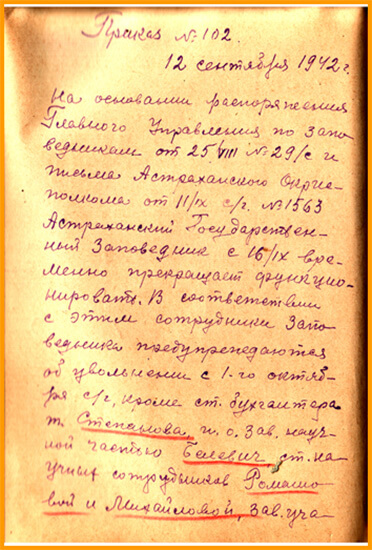 Приказ № 102.
12 сентября 1942 г.
На основании распоряжения
Главного Управления по запо-
ведникам от 25/VIII № 29/с и
письма Астраханского Окрис-
полкома от 11/IX с/г. № 1563
Астраханский Государствен-
ный Заповедник с 16/IX вре-
менно прекращает функцио-
нировать. В соответствии
с этим сотрудники Запо-
ведника предупреждаются
об увольнении с 1-го октяб-
ря с/г, кроме ст. бухгалтера
т. Степанова, и. о. зав. науч-
ной частью Белевич, ст. на-
учных сотрудников Ромашо-
вой и Михайловой, зав. уча-